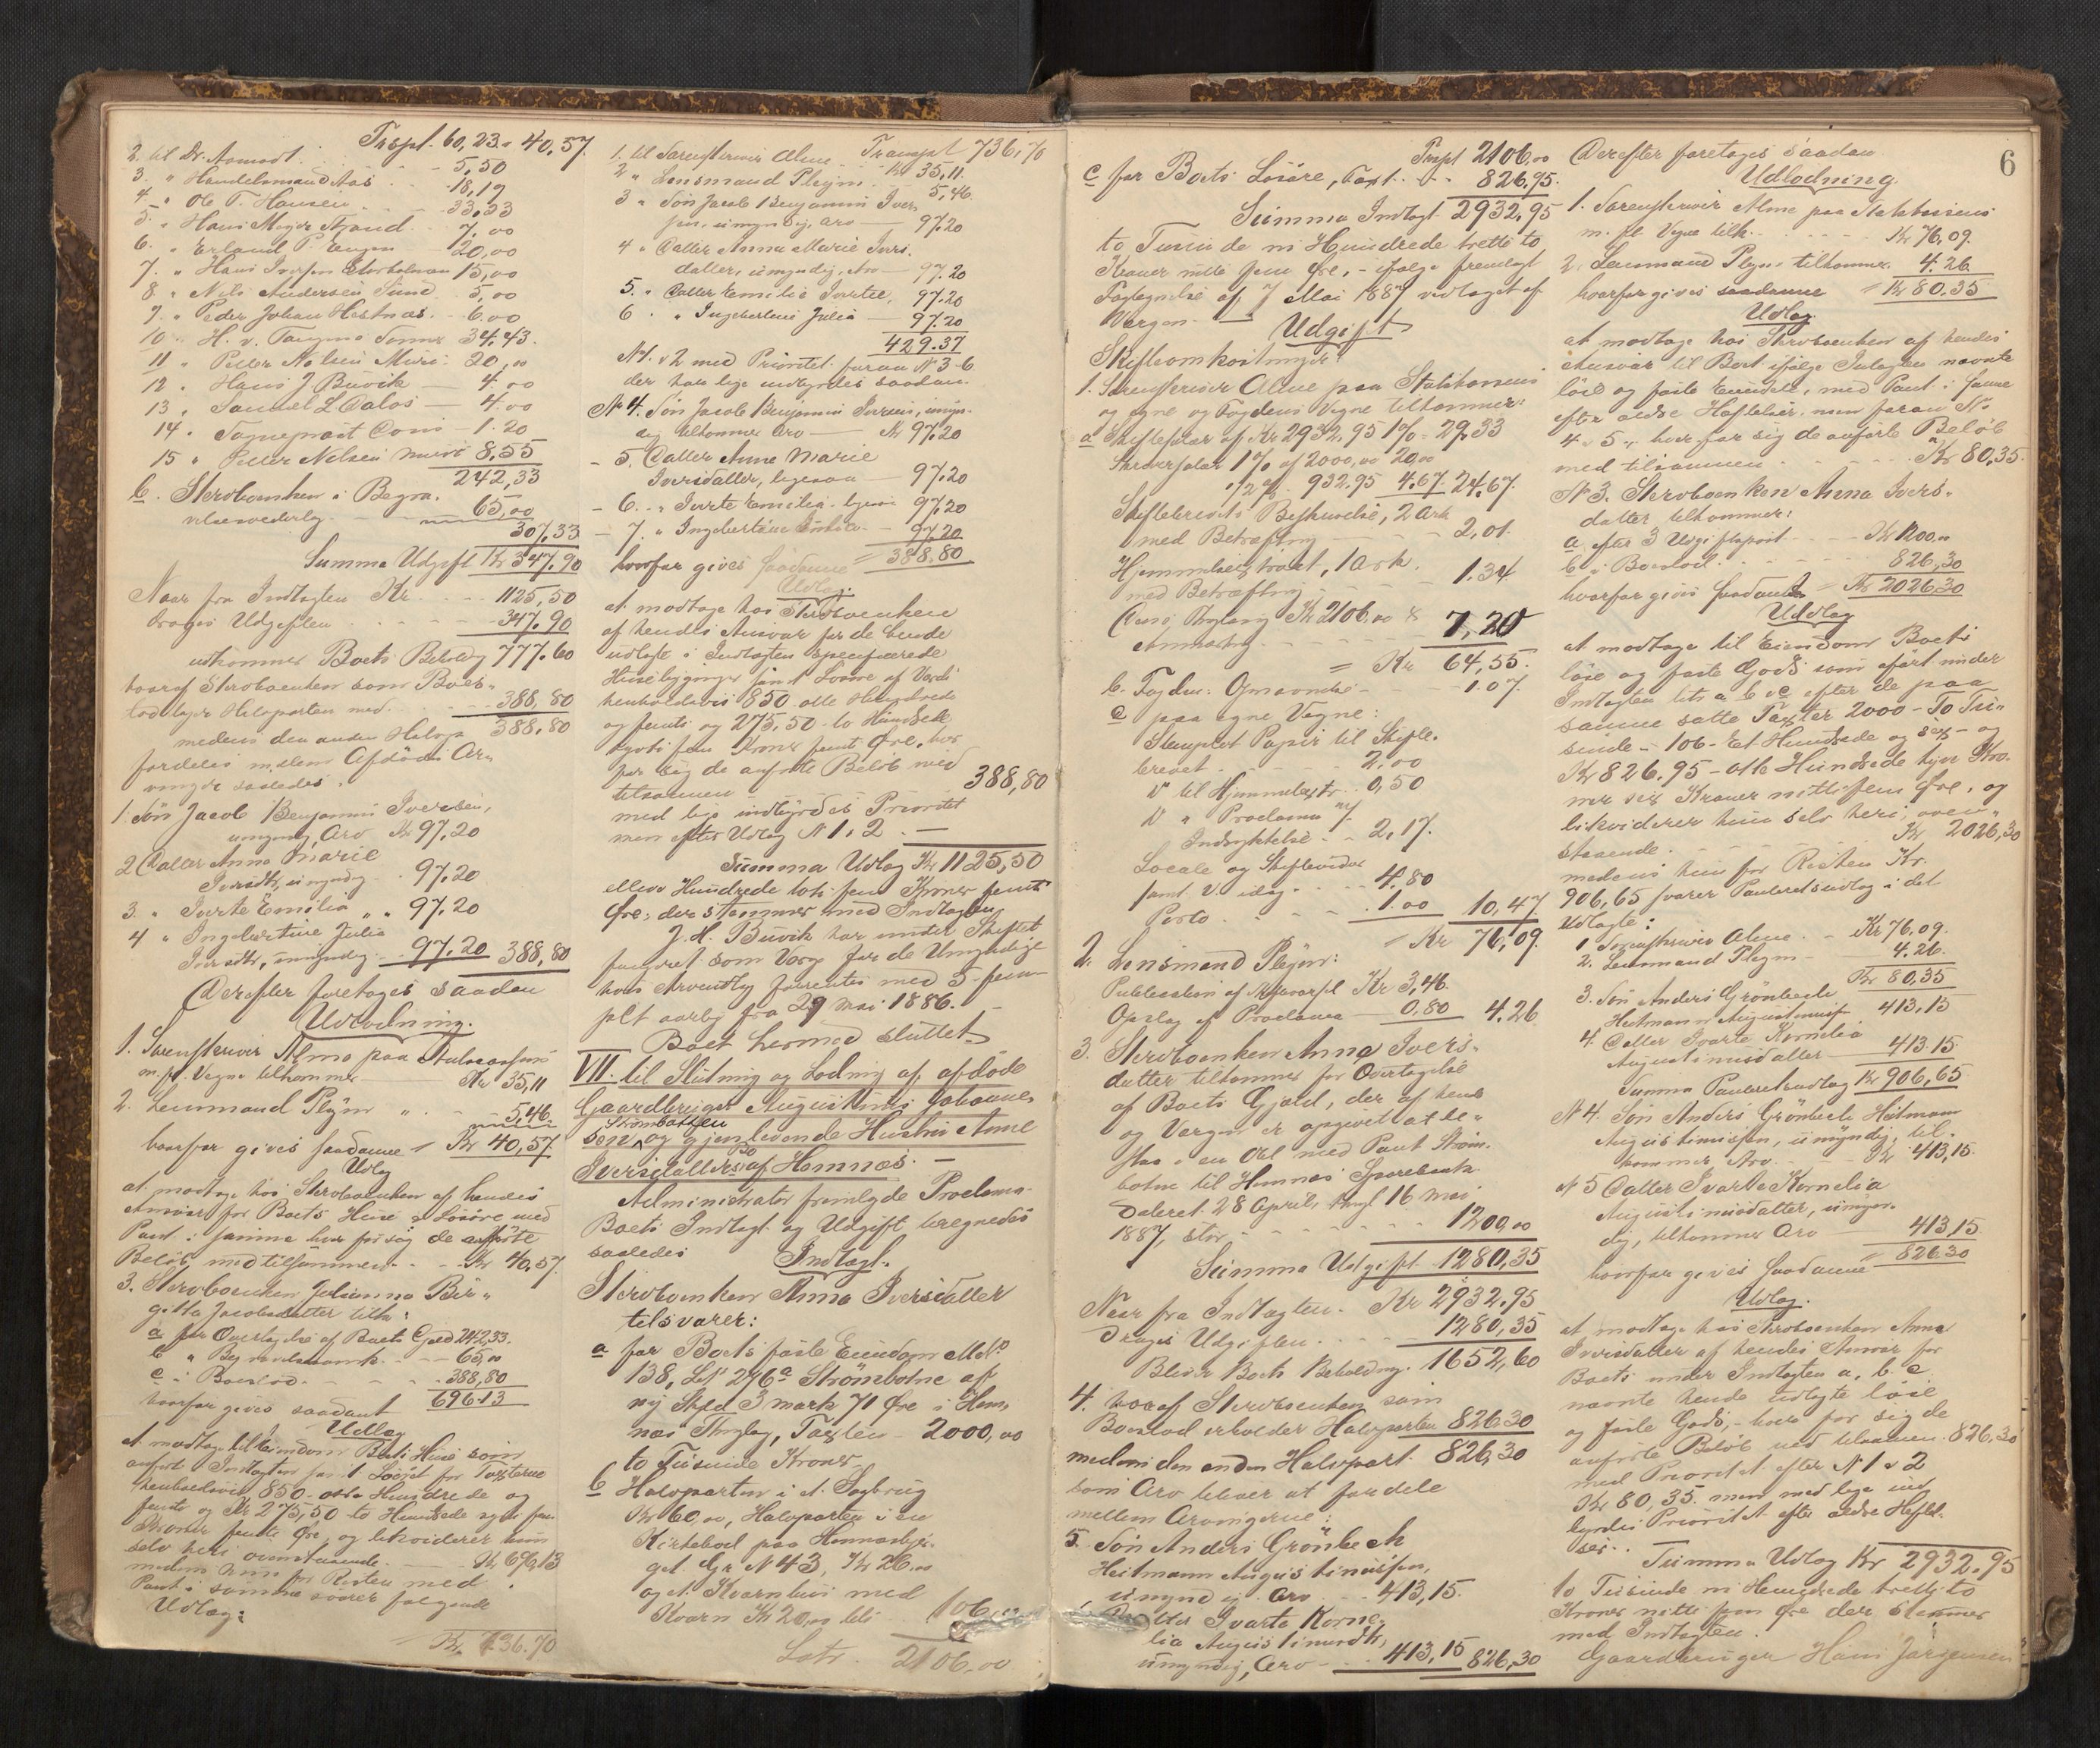 Trspt. 60,23. 40,57.
2. til Dr. Aamodt 5,50
3. " Handelsmand Aas 18,19
4. " Ole P. Hansen 33,33
5. " Hans Meyer Strand 7,00
6. " Erland P. 20,00
7. " Hans Iversen Storholmen 15,00
8 " Nils Andersen Sund 5,00
9. " Peder Johan Hestnæs 6.00
10 " H. v. Tangens Sønner 34,43.
11 " Peter Nelsen Muri 20,00
12 " Hans J Buvik 4.00
13 " Samuel L Dalos 4.00
14. " Sogneprest 1.20
15 " Peter Nelsen Muri 8,55
242,33
b. Skrboenken i Begra-
velsesvederlag 65,00
307,33
Summa Udgift Kr 347.90
Naar fra Indtægten Kr. 1125,50
drages Udgiften 347.90
udkommer Boets Beholdg 777.60
hvoraf Skrboenken som Boes-
lod tager Halvparten med 388,80
medens den anden Halvp. 388,80
fordeles mellem Afdødes Ar-
vinger saaledes:
1. Søn Jacob Benjamin Iversen,
umyndig, Arv Kr 97,20
2 Datter Anna Marie
Iversdtr, umyndig 97.20
3. " Ivarte Emilia " " 97.20
4 " Ingebertine Julia
Iversdtr, umyndig 97.20 388,80
Derefter foretoges saadan
Udlodning.
1. Sorenskriver Alme paa Statskassens
m. fl. Vegne tilkommer Kr. 35,11
2. Lensmand Plejm " 5,46
hvorfor gives saadanne Kr 40,57
Udlæg
at modtage hos Skrboenken af hendes
Ansvar for Boets Huse & Løsøre med
Pant i samme hver for sig de anførte
Beløb med tilsammen Kr 40,57.
3. Skrboenken Julianna Bir-
gitta Jacobsdatter tilk:
a for Overtagelse af Boets Gjæld 242,33.
b " Begravelsesomk. 65,00
c i Boeslod 388,80
hvorfor gives saadant 696.13
Udlæg
at modtage til Eiendom Boets Huse som
anført Indtægten for 1. Løsøret for Taxterne
henholdsvis 850 otte Hundrede og
femti og Kr 275,50 to Hundrede sytti fem
Kroner femti Øre, og likviderer hun
selv heri ovenstaaende Kr 696,13
medens hun for Resten med
Pant i samme svarer følgende
Udlæg:
Kr. 736.70
Transpt 736,70
1. til Sorenskriver Alme Kr 35,11.
2 " Lensmand Plejm 5,46
3 " Søn Jacob Benjamin Iver-
sen, umyndig, Arv 97.20
4 " Datter Anna Marie Ivers-
datter, umyndig, Arv 97.20
5. " Datter Emilia Ivarte, 97.20
6 " Ingebertine Julia 97.20
429.37
N 1. & 2 med Prioritet foran N 3-6
der har lige indbyrdes saadan.
N 4. Søn Jacob Benjamin Iversen, umyn-
dig tilkommer Arv Kr 97.20
- 5. Datter Anne Marie
Iversdatter, ligesaa 97.20
- 6. " Ivarte Emilia, ligesaa 97.20
- 7. " Ingebertine Emilie 97.20
hvorfor gives saadanne 388,80
Udlæg
at modtage hos Skrboenken
af hendes Ansvar for de hende
udlagte i Indtægten specificerede
Husebygninger samt Løsøre af Værdi
henholdsvis 850 otte Hundrede
og femti og 275,50 to Hundrede
sytti fem Kroner femti Øre, hver
for sig de anførte Beløb med
tilsammen 388,80
med lige indbyrdes Prioritet
men efter Udlæg N 1 & 2.
Summa Udlæg Kr 1125,50
elleve Hundrede toti fem Kroner femti
Øre; der stemmer med Indtægten.
J. H. Buvik har under Skiftet
fungeret som Værge for de Umyndige
hvis Arvemidler forrentes med 5 fem
pCt aarlig fra 29 Mai 1886.
Boet hermed sluttet
VII. til Slutning og Lodning af afdøde
Gaardbruger Augustinus Johanne-
sen Strømbotten og gjenlevende Hustru Anne
Iversdatters Bo af Hemnæs.
Administrator fremlagde Proclama.
Boets Indtægt og Udgift beregnedes
saaledes
Indtægt.
Skrboenken Anna Iversdatter
tilsvarer:
a for Boets faste Eiendom Mat
138, Løb 276a Strømbotne af
ny Skyld 3 mark 71 Øre i Hem-
næs Thglag, Taxten 2000,00
to Tusinde Kroner
b Halvparten i et Sagbrug
Kr 60,00, Halvparten i en
Kirkebod paa Hemnesbjer-
get Gr N 43, Kr 26,00
og et Kvarnhus med
Kvarn Kr 20,00 tils 106,00
Latr. 2106,00
6
Trspt 2106.00
c for Boets Løsøre, Taxt 826,95.
Summa Indtægt 2932.95
to Tusinde ni Hundrede tretti to
Kroner nitti fem Øre, ifølge fremlagt
Tagtegnelse af 7 Mai 1887 vedtaget af
Værgen.
Udgift
Skifteomkostninger
1. Sorenskriver Alme paa Statskassens
og egne og Fogdens Vegne tilkommer:
a Skiftesalær af Kr 2932,95 1% = 29,33
Skriversalær 1% af 2000,00 20,00
1/2 % 932.95 4.67. 24.67.
Skiftebrevets Beskrivelse, 2 Ark
med Betræftning 2,01.
Hjemmelsextract, 1 Ark
med Betræftning 1.34
Dens Thinglæsning Kr 2106.00 &
Anmærkning 7,20
= Kr 64,55.
b. Fogden: 1.07.
c paa egne Vegne:
Stemplet Papir til Skifte-
brevet 2,00
" til Hjemmelsextr. 0,50
" " Proclama
Indrykkelse 2,17.
Locale og Skiftevidner
samt V. idag 4,80
Porto 1.00 10,47.
= Kr 76,09.
2. Lensmand Plejm:
Publication af Kr 3,46.
Opslag af Proclama 0,80 4.26
3. Skrboenken Anna Ivers-
datter tilkommer for Overtagelse
af Boets Gjæld, der af hende
og Værgen er opgivet at be-
staa i en Obl. med Pant Strøm-
botne til Hemnes Sparebank
dateret 28 April, tingl 16 Mai
1887, stor 1200,00
Summa Udgift 1280,35
Naar fra Indtægten Kr 2932.95
drages Udgiften 1280,35
Bliver Boets Beholdng. 1652,60
4. hvoraf Skrboenken som
Boeslod erholder Halvparten 826,30
medens den anden Halvpart 826,30
som Arv bliver at fordele
mellem Arvingerne:
5. Søn Anders Grønbech
Heitmann Augustinussen,
umyndig, Arv 413,15.
Datter Ivarta Korne-
lia Augustinusdtr,
umyndig, Arv 413,15 826,30
Derefter foretoges saadan
Udlodning.
1. Sorenskriver Alme paa Statskassens
m. fl. Vegne tilk. Kr 76,09.
2. Lensmand Plejm tilkommer 4.26
hvorfor gives saadanne Kr 80.35
Udlæg.
at modtage hos Skrboenken af hendes
Ansvar til Boet ifølge Indtægten nævnte
løse og faste Eiendele, med Pant i samme
efter ældre Heftelser, men foran N
4 & 5, hver for sig de anførte Beløb
med tilsammen Kr 80,35.
N 3. Skrboenken Anna Ivers-
datter tilkommer:
a efter 3 Udgiftspost Kr 1200,00
b i Boeslod 826,30
hvorfor gives saadant = Kr 2026,30
Udlæg
at modtage til Eiendom Boets
løse og faste Gods som anført under
Indtægten litr. a b & c efter de paa
samme satte Taxter 2000 - To Tu-
sinde - 106 - Et Hundrede og sex - og
Kr 826.95 - otte Hundrede tyve Kro-
ner sex Kroner nittifem Øre, og
likviderer hun selv heri oven-
staaende Kr 2026,30
medens hun for Resten Kr.
906,65 svarer Panteretsudlæg i det
Udlagte:
1 Sorenskriver Alme Kr 76,09.
2. Lensmand Plejm 4.26.
Kr 80,35
3. Søn Anders Grønbech
Heitmann Augustinusen 413,15
4. Datter Ivarte Kornelia
Augustinusdatter 413.15
Summa Panteretsudlæg Kr 906,65
N 4. Søn Anders Grønbech Heitmann
Augustinussen, umyndig, til-
kommer Arv Kr 413,15.
N 5 Datter Ivarta Kornelia
Augustinusdatter, umyn-
dig, tilkommer Arv 413,15
hvorfor gives saadanne = 826.30
Udlæg.
at modtage hos Skrboenken Anna
Iversdatter af hendes Ansvar for
Boets under Indtægten a, b. c
nævnte hende udlagte løse
og faste Gods, hver for sig de
anførte Beløb med tilsammen 826,30
med Prioritet efter N 1 & 2
Kr 80,35. men med lige ind-
byrdes Prioritet efter ældre Heftel-
ser.
Summa Udlæg Kr 2932.95
to Tusinde ni Hundrede tretti to
Kroner nitti fem Øre der stemmer
med Indtægten.
Gaardbruger Hans Jørgensen